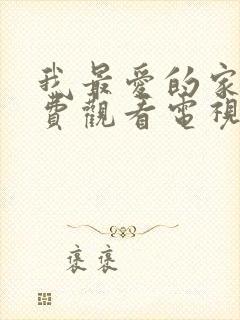 我最愛的家
費觀看電視
褒褒